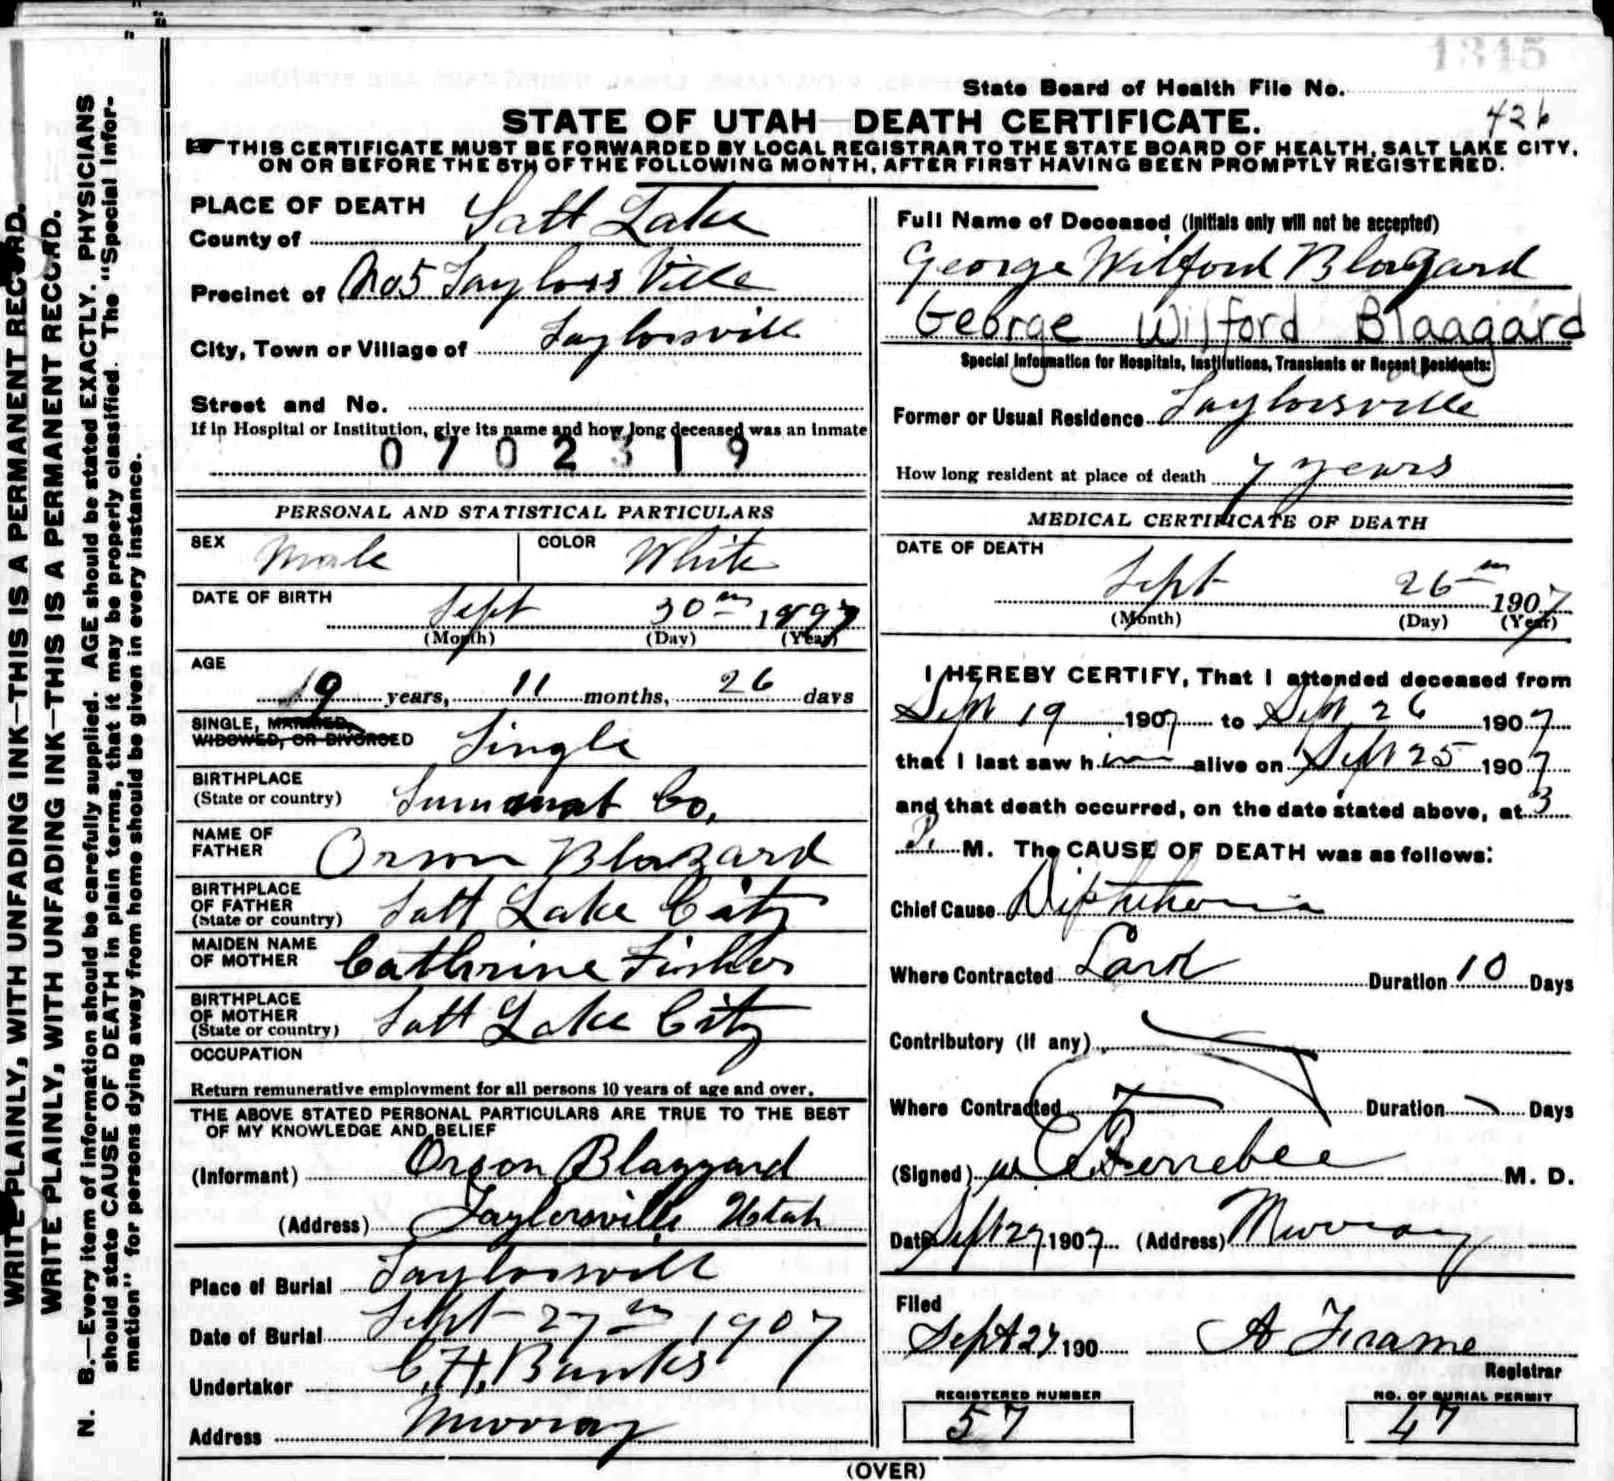 1345
State Board of Health File No.
426
STATE OF UTAH—DEATH CERTIFICATE.
☛THIS CERTIFICATE MUST BE FORWARDED BY LOCAL REGISTRAR TO THE STATE BOARD OF HEALTH, SALT LAKE CITY,
ON OR BEFORE THE 5TH OF THE FOLLOWING MONTH, AFTER FIRST HAVING BEEN PROMPTLY REGISTERED.
WRITE PLAINLY, WITH UNFADING INK—THIS IS A PERMANENT RECORD.
WRITE PLAINLY, WITH UNFADING INK—THIS IS A PERMANENT RECORD.
N. B.—Every item of information should be carefully supplied. AGE should be stated EXACTLY. PHYSICIANS
should state CAUSE OF DEATH in plain terms, that it may be properly classified. The "Special Infor-
mation" for persons dying away from home should be given in every instance.
PLACE OF DEATH
County of Salt Lake
Precinct of No 5 Taylors Ville
City, Town or Village of Taylorsvill
Street and No.
If in Hospital or Institution, give its name and how long deceased was an inmate
0702319
PERSONAL AND STATISTICAL PARTICULARS
SEX Male COLOR White
DATE OF BIRTH Sept 30th 1897
(Month) (Day) (Year)
AGE
9 years, 11 months, 26 days
SINGLE, MARRIED,
WIDOWED, OR DIVORCED Single
BIRTHPLACE
(State or country) Summat Co.
NAME OF
FATHER Orson Blazzard
BIRTHPLACE
OF FATHER
(State or country) Salt Lake City
MAIDEN NAME
OF MOTHER Cathrine Fisher
BIRTHPLACE
OF MOTHER
(State or country) Salt Lake City
OCCUPATION
Return remunerative employment for all persons 10 years of age and over.
THE ABOVE STATED PERSONAL PARTICULARS ARE TRUE TO THE BEST
OF MY KNOWLEDGE AND BELIEF
(Informant) Orson Blazzard
(Address) Taylersville Utah
Place of Burial Taylorsvill
Date of Burial Sept 27th 1907
Undertaker C. H. Banks
Address Murray
Full Name of Deceased (Initials only will not be accepted)
George Wilford Blazzard
George Wilford Blaagard
Special Information for Hospitals, Institutions, Transients or Recent Residents:
Former or Usual Residence Taylorsville
How long resident at place of death 7 years
MEDICAL CERTIFICATE OF DEATH
DATE OF DEATH
Sept 26th 1907
(Month) (Day) (Year)
I HEREBY CERTIFY, That I attended deceased from
Sept 19 1907 to Sept 26 1907
that I last saw him alive on Sept 25 1907
and that death occurred, on the date stated above, at 3
P. M. The CAUSE OF DEATH was as follows:
Chief Cause Diphtheria
Where Contracted Lark Duration 10 Days
Contributory (if any)
Where Contracted Duration Days
(Signed) Ferrebee M. D.
Date Sept 27 1907 (Address) Murray
Filed
Sept 27 190 A Frame
Registrar
REGISTERED NUMBER
57
NO. OF BURIAL PERMIT
47
(OVER)